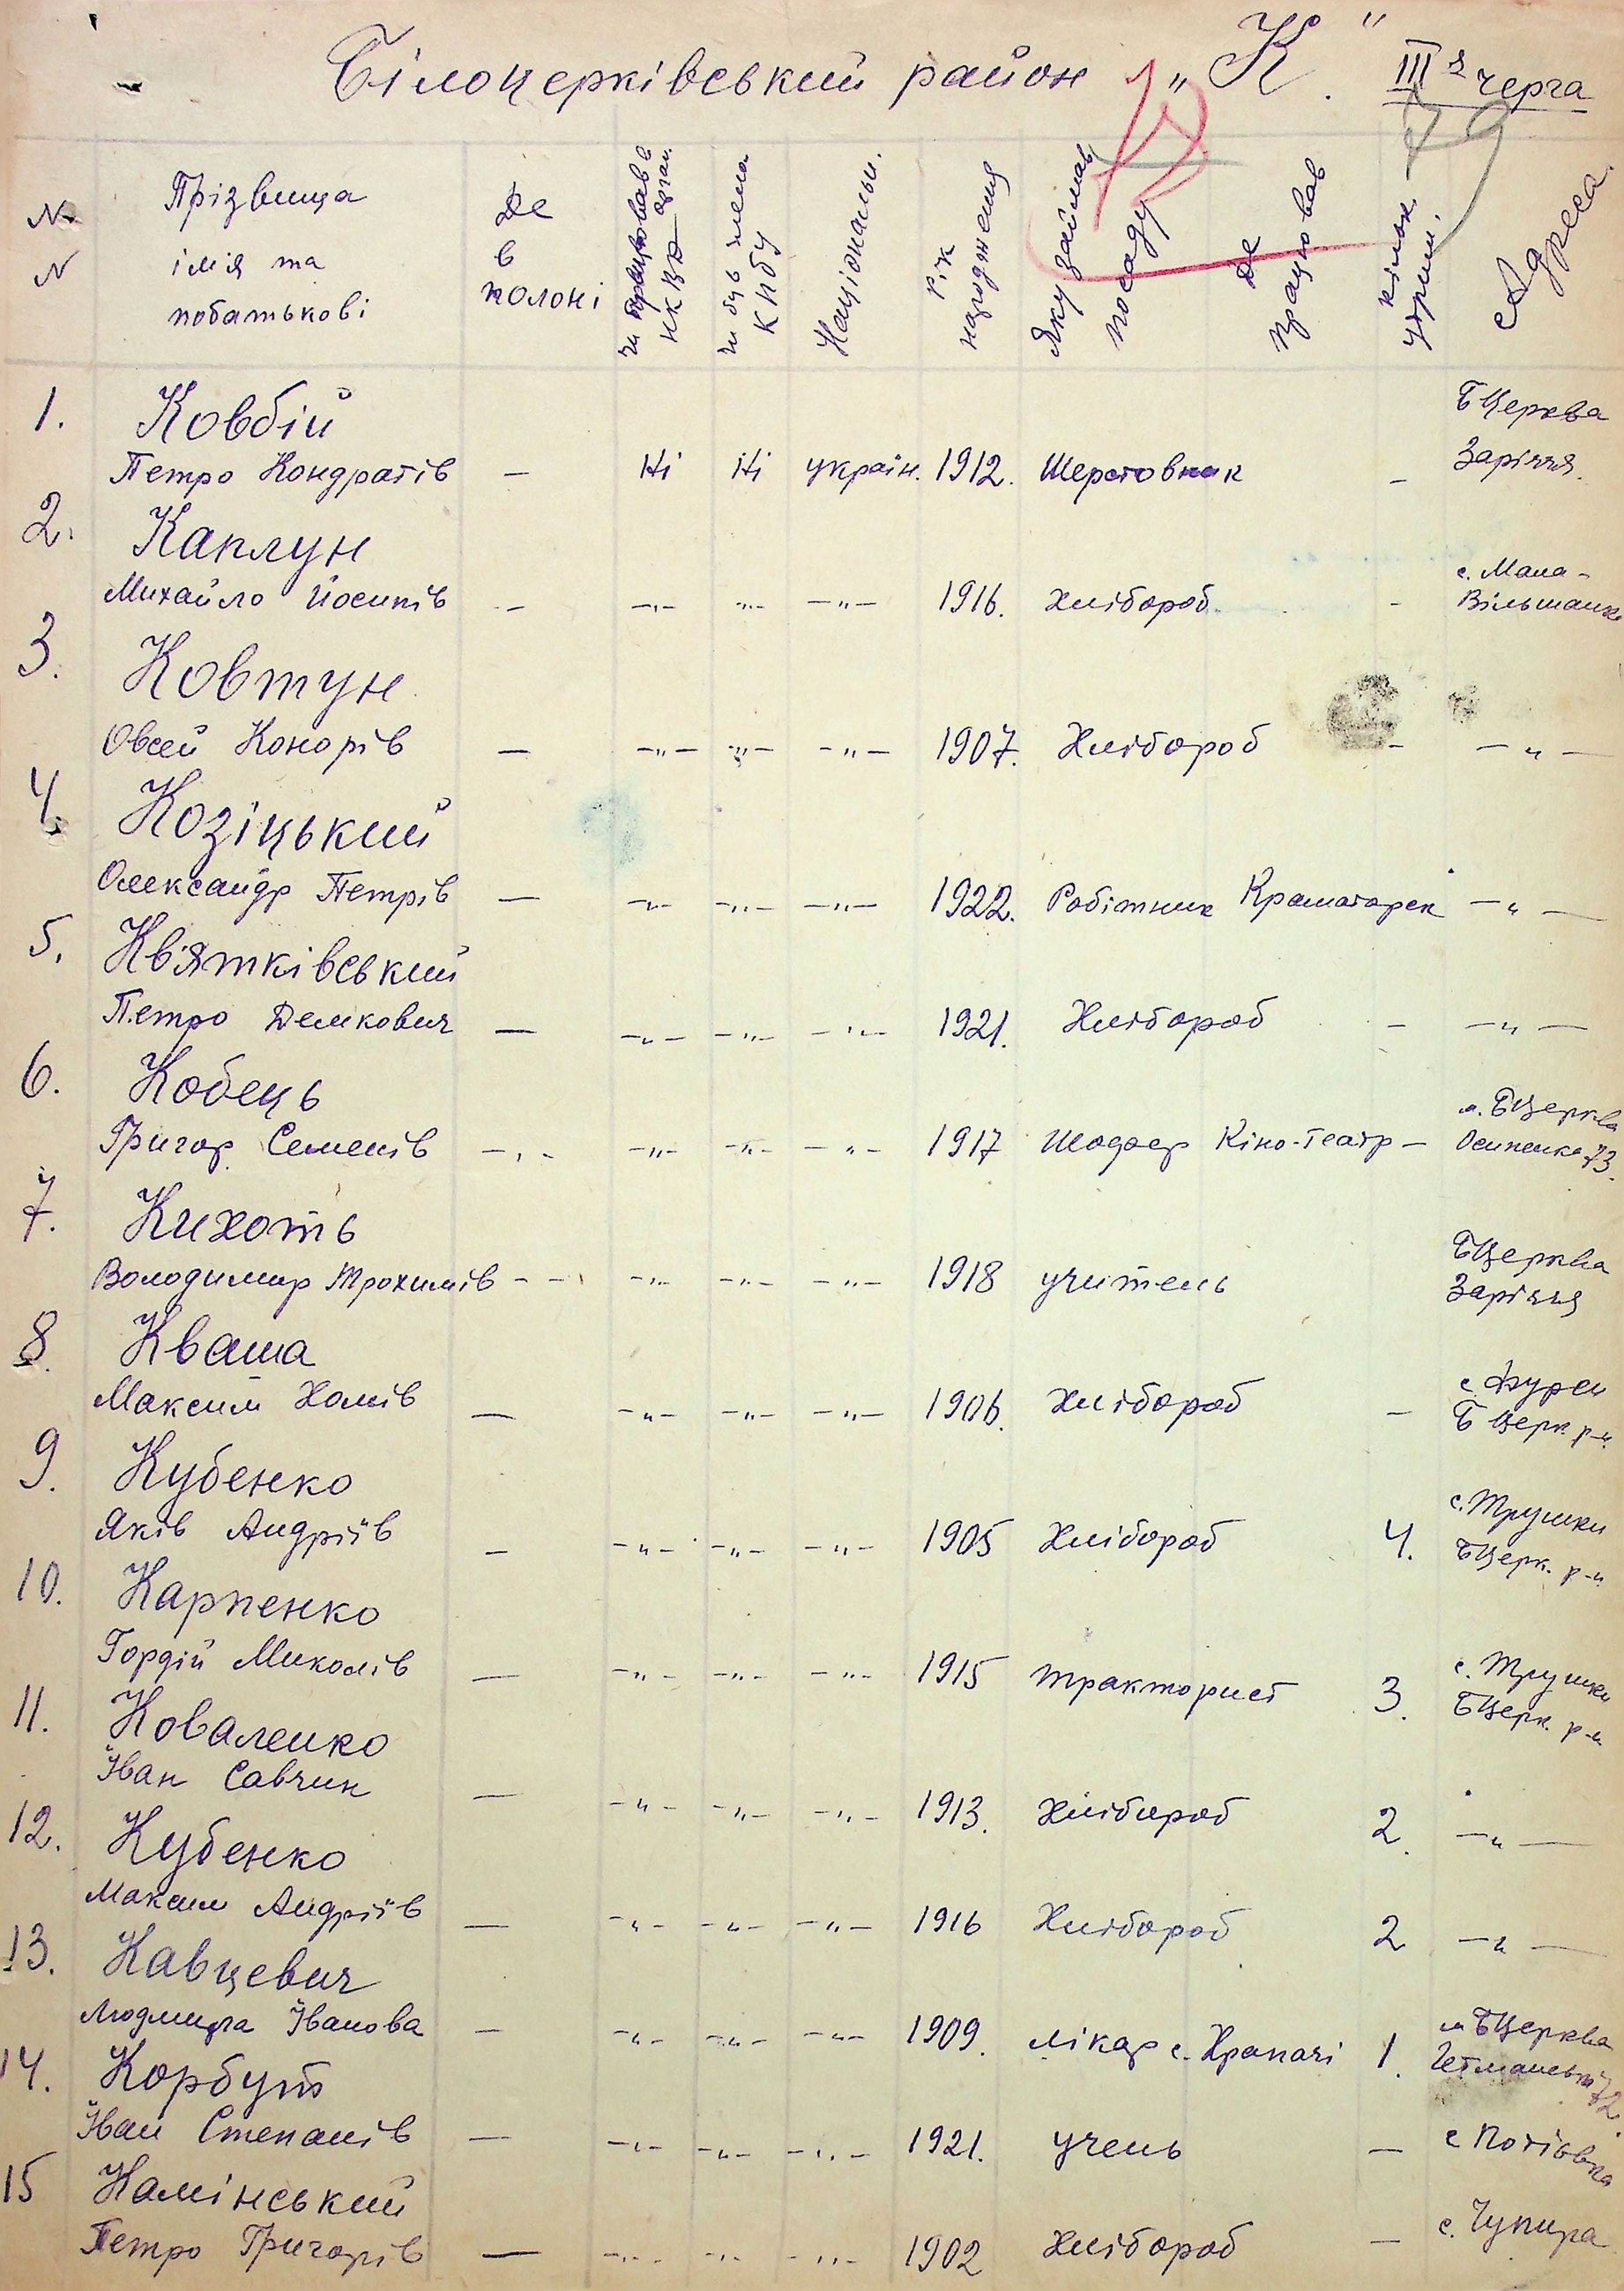 Білоцерківський район „К." ІІІя черга
№ N Прізвища імія та побатькові
Де в полоні
чи працював в орган. НКВД
чи був член КПбУ
Національн.
Рік народження
Яку займав посаду
Де працював
кільк. утрим.
Адреса.
1. Ковбій БЦерква
Петро Кондратів — Ні Ні україн. 1912. Шерстовник - Заріччя.
2. Каплун с. Мала-
Михайло Йосипів — —„— —„— —„— 1916. Хлібороб. - Вільшанка
3. Ковтун
Овсей Конорів — —„— —„— —„— 1907. Хлібороб - —„—
4. Козіцький
Олександр Петрів — —„— —„— —„— 1922. Робітник Краматорск —„—
5. Квятківський
Петро Демкович — —„— —„— —„— 1921. Хлібороб - —„—
6. Кобець м. БЦерква
Григор. Семенів —„— —„— —„— —„— 1917 Шофер Кіно-театр — Осипенка 73.
7. Кихоть БЦерква
Володимир Трохимів - - —„— —„— —„— 1918 учитель Заріччя
8. Кваша
Максим Хомів — —„— —„— —„— 1906. Хлібороб - Б Церк. р-н.
9. Кубенко с. Трушки
Яків Андріїв — —„— —„— —„— 1905 Хлібороб 4. БЦерк. р-н
10. Карпенко с. Трушки
Гордій Миколів — —„— —„— —„— 1915 тракторист 3. БЦерк. р-н
11. Коваленко
Іван Савчин — —„— —„— —„— 1913. Хлібороб 2. —„—
12. Кубенко
Максим Андріїв — —„— —„— —„— 1916 Хлібороб 2 —„—
13. Кавцевич м. БЦерква
Людмила Іванова — —„— —„— —„— 1909. лікар с. Храпачі 1. Гетманськ 72.
14. Корбут
Іван Степанів — —„— —„— —„— 1921. учень — с. Потіївка
15 Камінський
Петро Григорів — —„— —„— —„— 1902 Хлібороб — с. Чупира